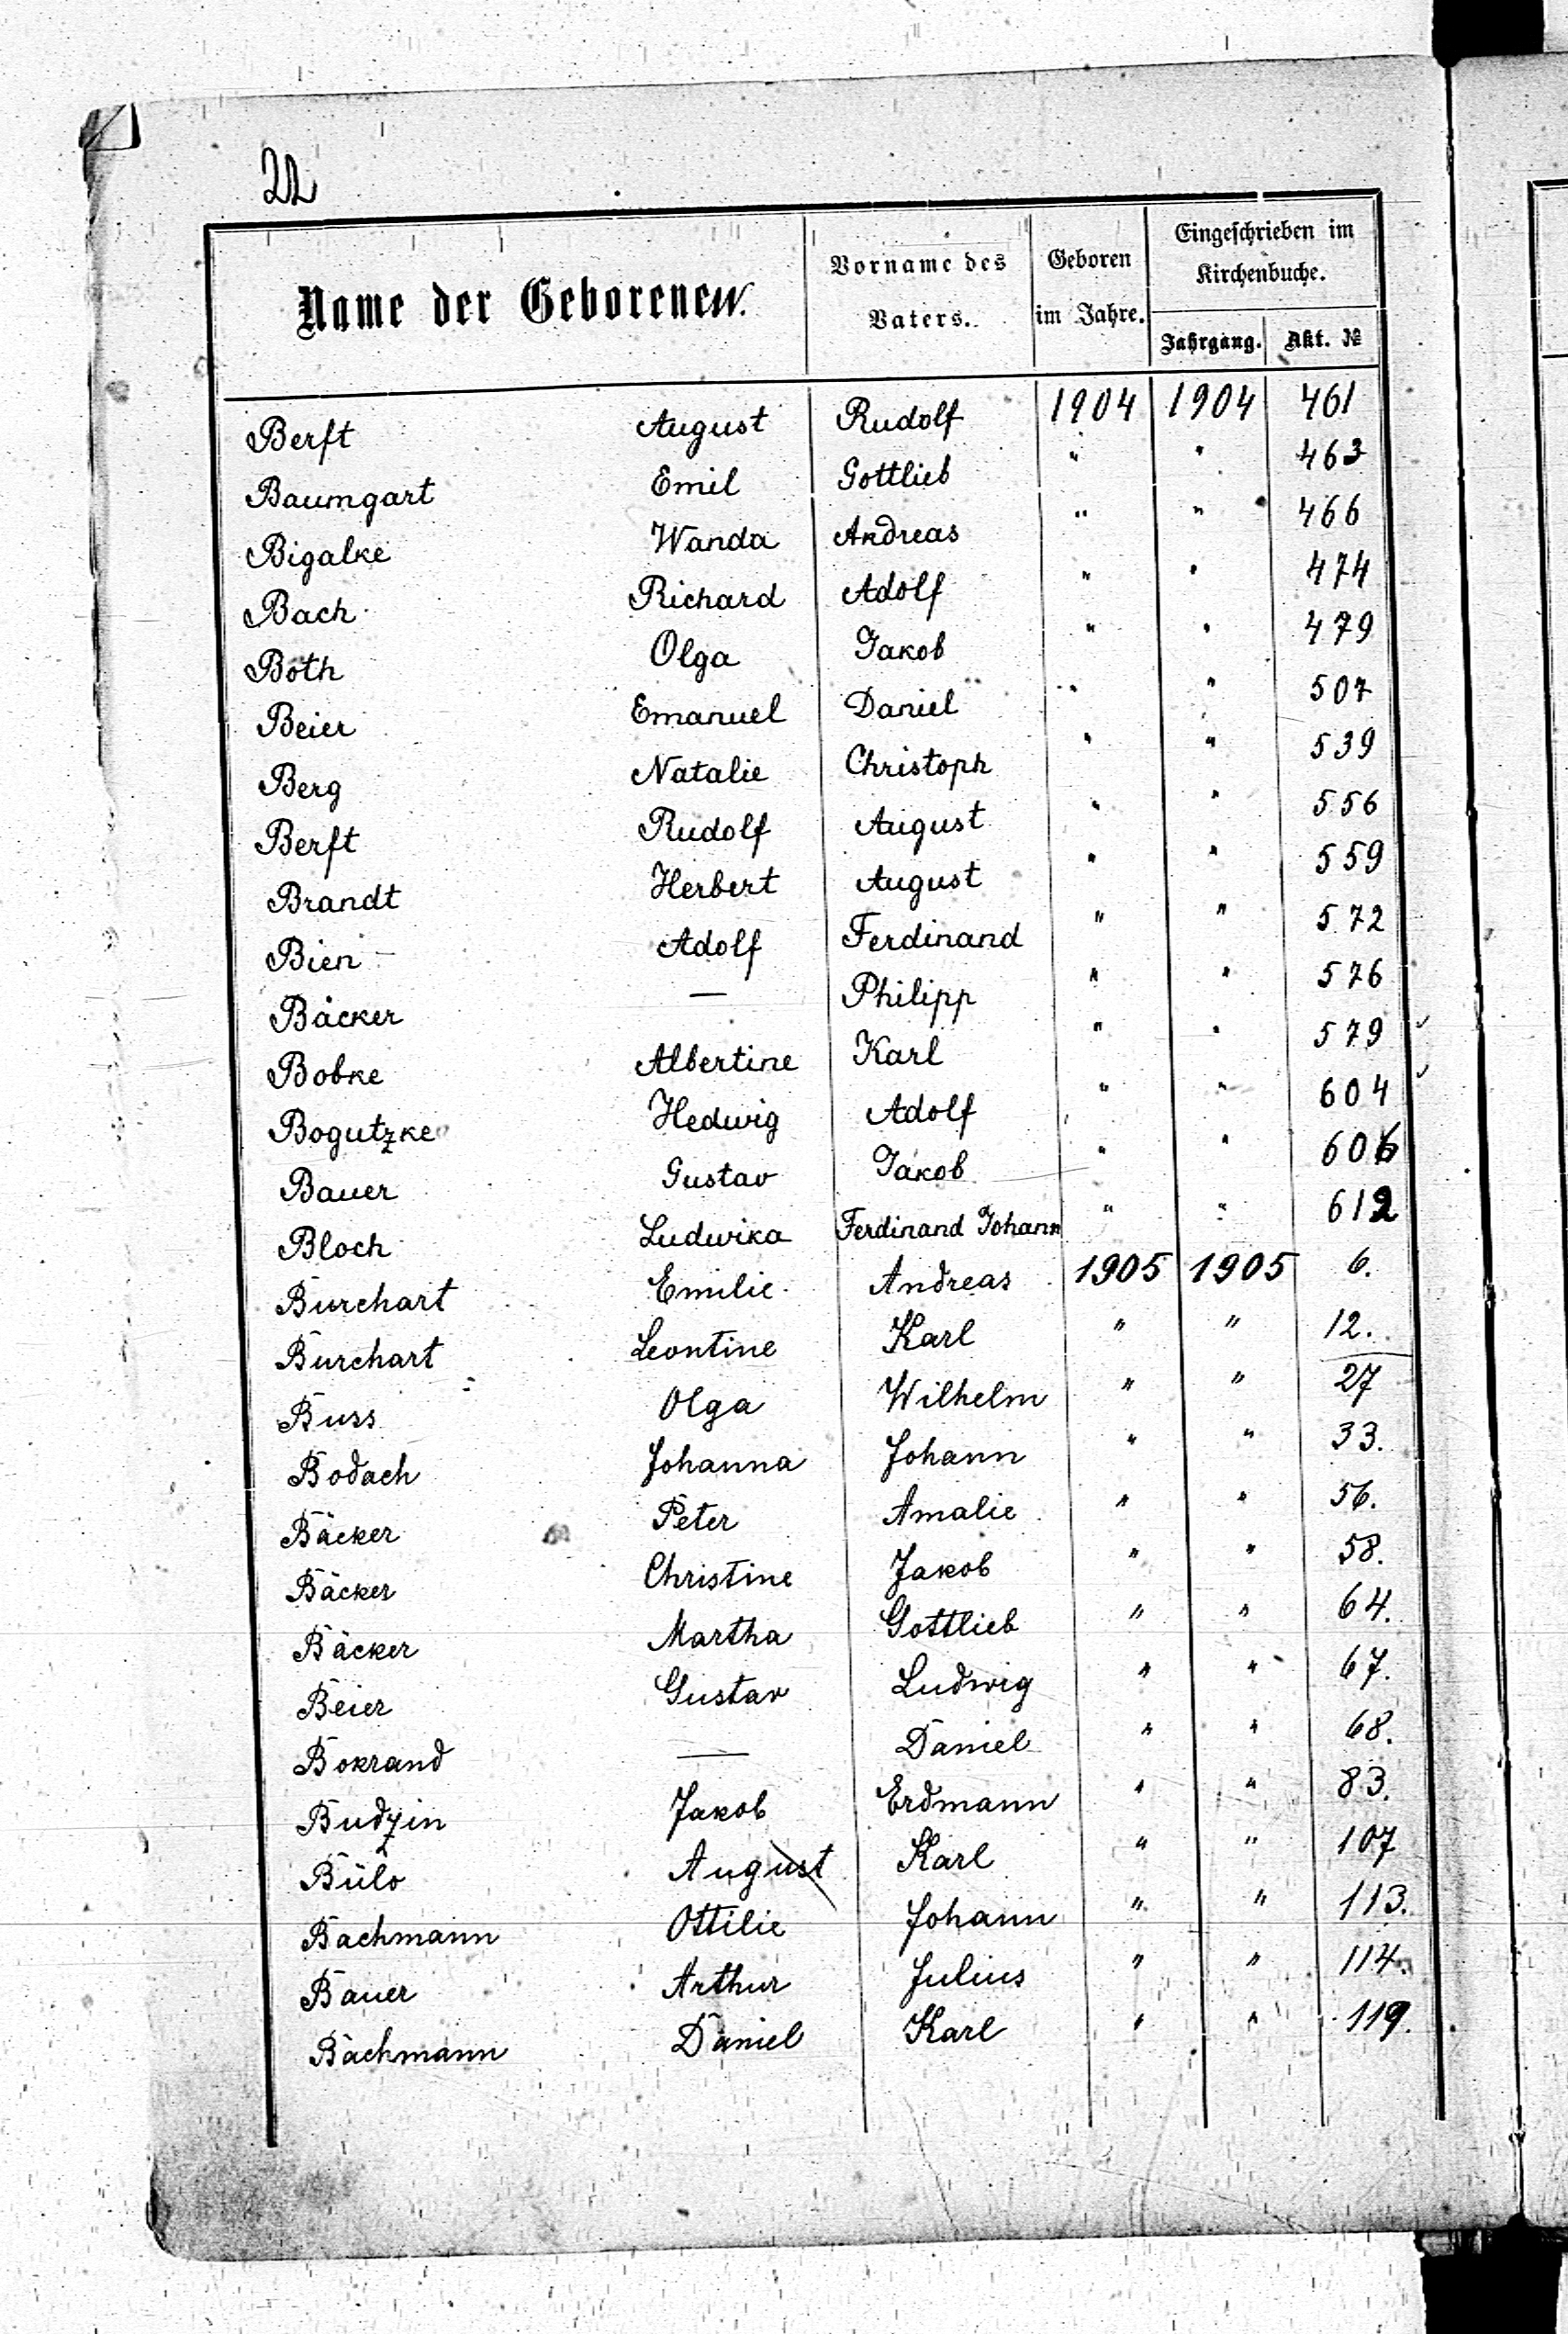 22
Name der Geborenen.
Vorname des Vaters.
Geboren im Jahre.
Eingeschrieben im Kirchenbuche.
Jahrgang. Akt. №
Berft August Rudolf 1904 1904 461
Baumgart Emil Gottlieb " " 463
Bigalke Wanda Andreas " " 466
Bach Richard Adolf " " 474
Both Olga Jakob " " 479
Beier Emanuel Daniel " " 507
Berg Natalie Christoph " " 539
Berft Rudolf August " " 556
Brandt Herbert August " " 559
Bien Adolf Ferdinand " " 572
Bäcker — Philipp " " 576
Bobke Albertine Karl " " 579
Bogutzke Hedwig Adolf " " 604
Bauer Gustav Jakob " " 606
Bloch Ludwika Ferdinand Johann " " 612
Burchart Emilie Andreas 1905 1905 6.
Burchart Leontine Karl " " 12.
Buss Olga Wilhelm " " 27
Bodach Johanna Johann " " 33.
Bäcker Peter Amalie " " 56.
Bäcker Christine Jakob " " 58.
Bäcker Martha Gottlieb " " 64.
Beier Gustav Ludwig " " 67.
Bokrand — Daniel " " 68.
Budzin Jakob Erdmann " " 83.
Bülo August Karl " " 107
Bachmann Ottilie Johann " " 113.
Bauer Arthur Julius " " 114.
Bachmann Daniel Karl " " 119.